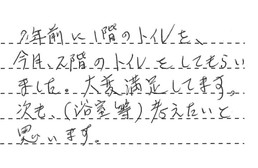 2年前に1階のトイレを、
今月、2階のトイレをしてもらい
ました。大変満足してます。
次も、(浴室等)考えたいと
思います。